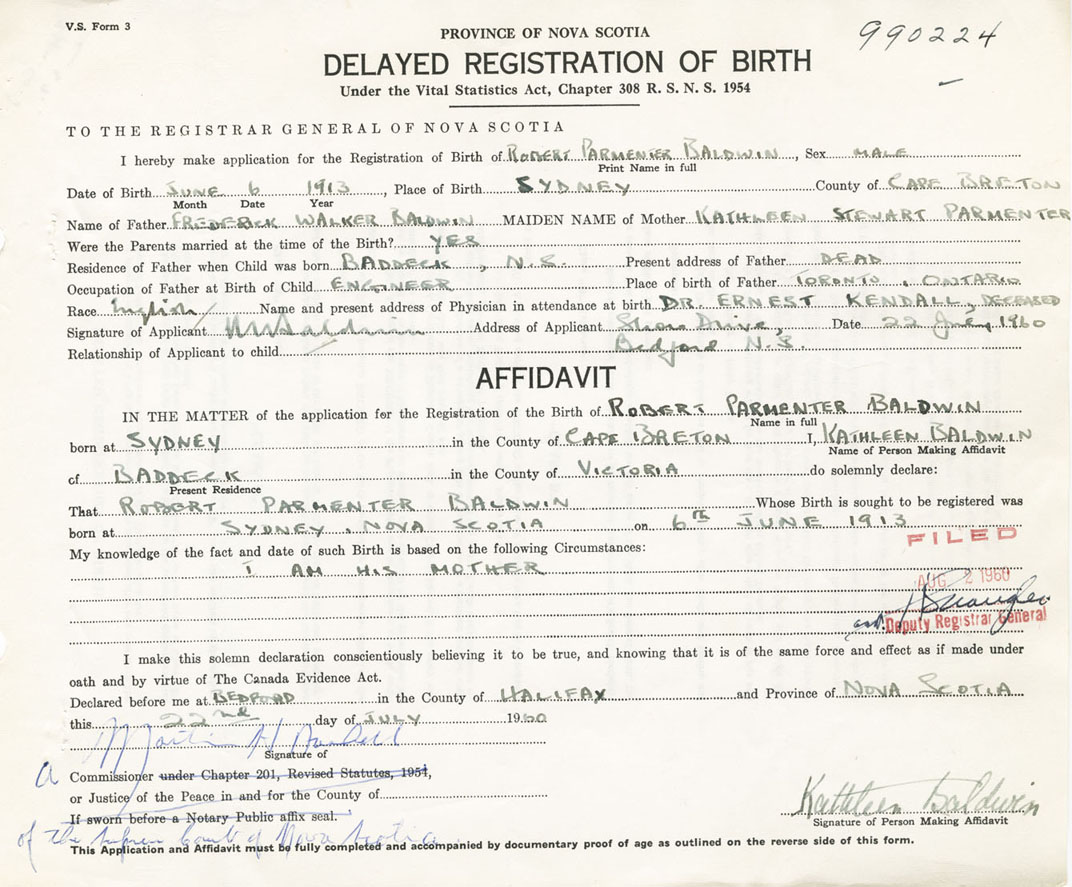 V.S. Form 3
PROVINCE OF NOVA SCOTIA
990224
DELAYED REGISTRATION OF BIRTH
Under the Vital Statistics Act, Chapter 308 R. S. N. S. 1954
TO THE REGISTRAR GENERAL OF NOVA SCOTIA
I hereby make application for the Registration of Birth of ROBERT PARMENTER BALDWIN, Sex MALE
Print Name in full
Date of Birth JUNE 6 1913, Place of Birth SYDNEY County of CAPE BRETON
Month Date Year
Name of Father FREDERICK WALKER BALDWIN MAIDEN NAME of Mother KATHLEEN STEWART PARMENTER
Were the Parents married at the time of the Birth? YES
Residence of Father when Child was born BADDECK, N.S. Present address of Father DEAD
Occupation of Father at Birth of Child ENGINEER Place of birth of Father TORONTO, ONTARIO
Race English Name and present address of Physician in attendance at birth DR. ERNEST KENDALL, DECEASED
Signature of Applicant Baldwin Address of Applicant Shore Drive, Date 22 July 1960
Relationship of Applicant to child Bedford N.S.
AFFIDAVIT
IN THE MATTER of the application for the Registration of the Birth of ROBERT PARMENTER BALDWIN
Name in full
born at SYDNEY in the County of CAPE BRETON I, KATHLEEN BALDWIN
Name of Person Making Affidavit
of BADDECK in the County of VICTORIA do solemnly declare:
Present Residence
That ROBERT PARMENTER BALDWIN Whose Birth is sought to be registered was
born at SYDNEY, NOVA SCOTIA on 6TH JUNE 1913
FILED
My knowledge of the fact and date of such Birth is based on the following Circumstances:
I AM HIS MOTHER
AUG 2 1960
Deputy Registrar General
I make this solemn declaration conscientiously believing it to be true, and knowing that it is of the same force and effect as if made under
oath and by virtue of The Canada Evidence Act.
Declared before me at BEDFORD in the County of HALIFAX and Province of NOVA SCOTIA
this 22nd day of JULY 1960
Signature of
A Commissioner under Chapter 201, Revised Statutes, 1954,
or Justice of the Peace in and for the County of
If sworn before a Notary Public affix seal.
Kathleen Baldwin
Signature of Person Making Affidavit
of the Supreme Court of Nova Scotia
This Application and Affidavit must be fully completed and accompanied by documentary proof of age as outlined on the reverse side of this form.